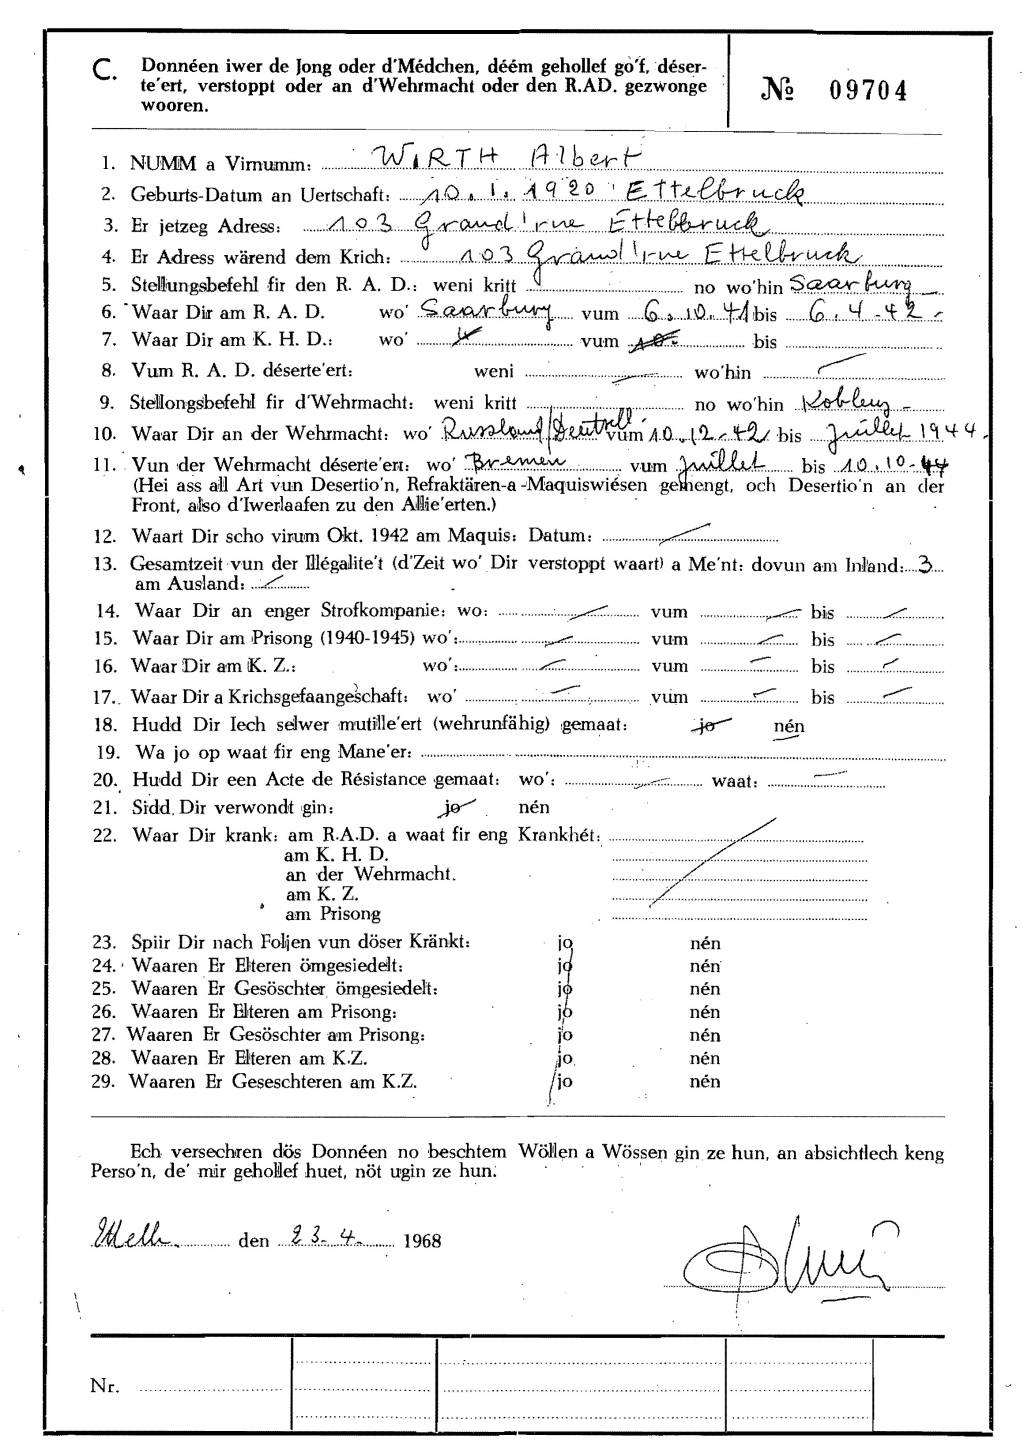 C. Donnéen iwer de Jong oder d'Médchen, déém gehollef go'f, déser-
te'ert, verstoppt oder an d'Wehrmacht oder den R.AD. gezwonge
wooren.
№ 09704
1. NUMM a Virnumm: WIRTH Albert
2. Geburts-Datum an Uertschaft: 10.I.1920 Ettelbruck
3. Er jetzeg Adress: 103 Grand'rue Ettelbruck
4. Er Adress wärend dem Krich: 103 Grand'rue Ettelbruck
5. Stellungsbefehl fir den R. A. D.: weni kritt no wo'hin Saarburg
6. Waar Dir am R. A. D. wo' Saarburg vum 6.10.41 bis 6.4-42-
7. Waar Dir am K. H. D.: wo' vum bis
8. Vum R. A. D. déserte'ert: weni wo'hin
9. Stellongsbefehl fir d'Wehrmacht: weni kritt no wo'hin Koblenz -
10. Waar Dir an der Wehrmacht: wo' Russland/Deutschl vum 10.12-42 bis Juillet 1944-
11. Vun der Wehrmacht déserte'ert: wo' Bremen vum Juillet bis 10.10-44
(Hei ass all Art vun Desertio'n, Refraktären-a -Maquiswiésen gemengt, och Desertio'n an der
Front, also d'Iwerlaafen zu den Allie'erten.)
12. Waart Dir scho virum Okt. 1942 am Maquis: Datum:
13. Gesamtzeit vun der Illégalite't (d'Zeit wo' Dir verstoppt waart) a Me'nt: dovun am Inland: 3
am Ausland:
14. Waar Dir an enger Strofkompanie: wo: vum bis
15. Waar Dir am Prisong (1940-1945) wo': vum bis
16. Waar Dir am K. Z.: wo': vum bis
17. Waar Dir a Krichsgefaangeschaft: wo' vum bis
18. Hudd Dir Iech selwer mutille'ert (wehrunfähig) gemaat: jo nén
19. Wa jo op waat fir eng Mane'er:
20. Hudd Dir een Acte de Résistance gemaat: wo': waat:
21. Sidd Dir verwondt gin: jo nén
22. Waar Dir krank: am R.A.D. a waat fir eng Krankhét:
am K. H. D.
an der Wehrmacht.
am K. Z.
am Prisong
23. Spiir Dir nach Foljen vun döser Kränkt: jo nén
24. Waaren Er Elteren ömgesiedelt: jo nén
25. Waaren Er Gesöschter ömgesiedelt: jo nén
26. Waaren Er Elteren am Prisong: jo nén
27. Waaren Er Gesöschter am Prisong: jo nén
28. Waaren Er Elteren am K.Z. jo nén
29. Waaren Er Geseschteren am K.Z. jo nén
Ech versechren dös Donnéen no beschtem Wöllen a Wössen gin ze hun, an absichtlech keng
Perso'n, de' mir gehollef huet, nöt ugin ze hun.
Ettelb. den 23-4- 1968
Nr.